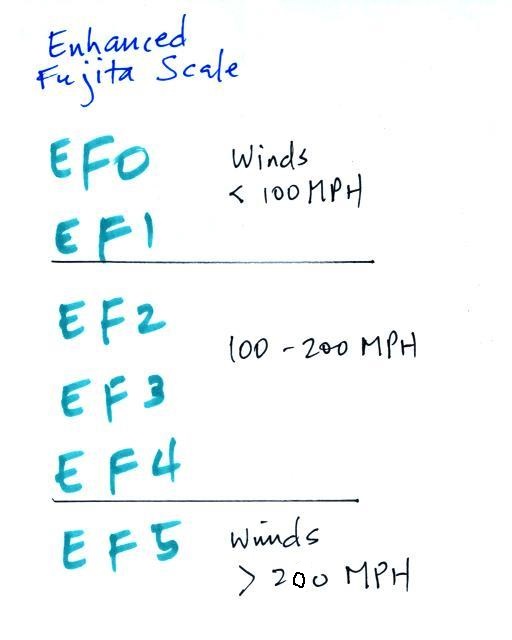 Enhanced
Fujita Scale
EF0 Winds
< 100 MPH
EF1
EF2
100 - 200 MPH
EF3
EF4
EF5 Winds
> 200 MPH